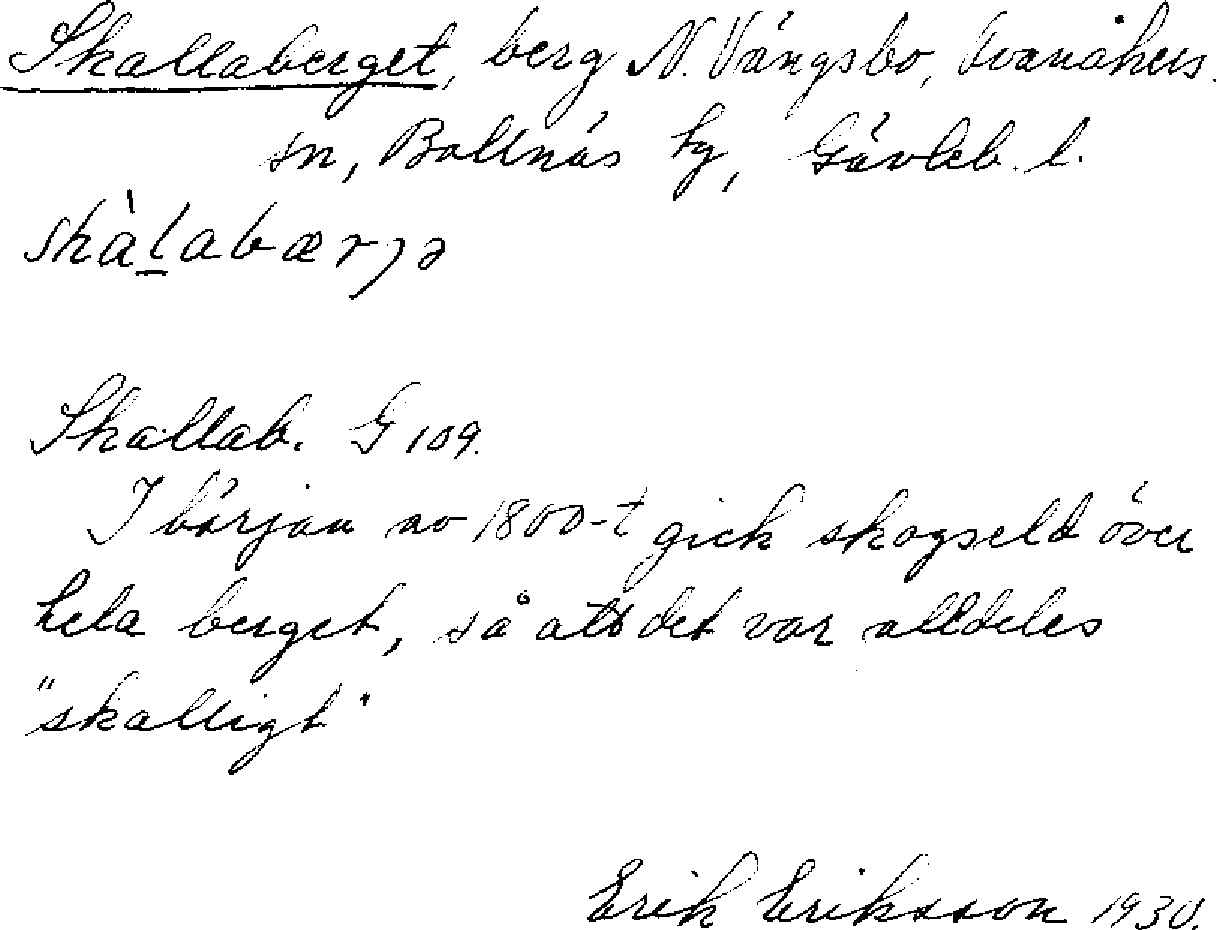 Skallaberget, berg N. Vängsbo, Svanåhers.
sn, Bollnäs tg, Gävleb. l.
skàlabærjə
Skallab. G 109.
I början av 1800-t gick skogseld över
hela berget, så att det var alldeles
"skalligt"
Erik Eriksson 1930.